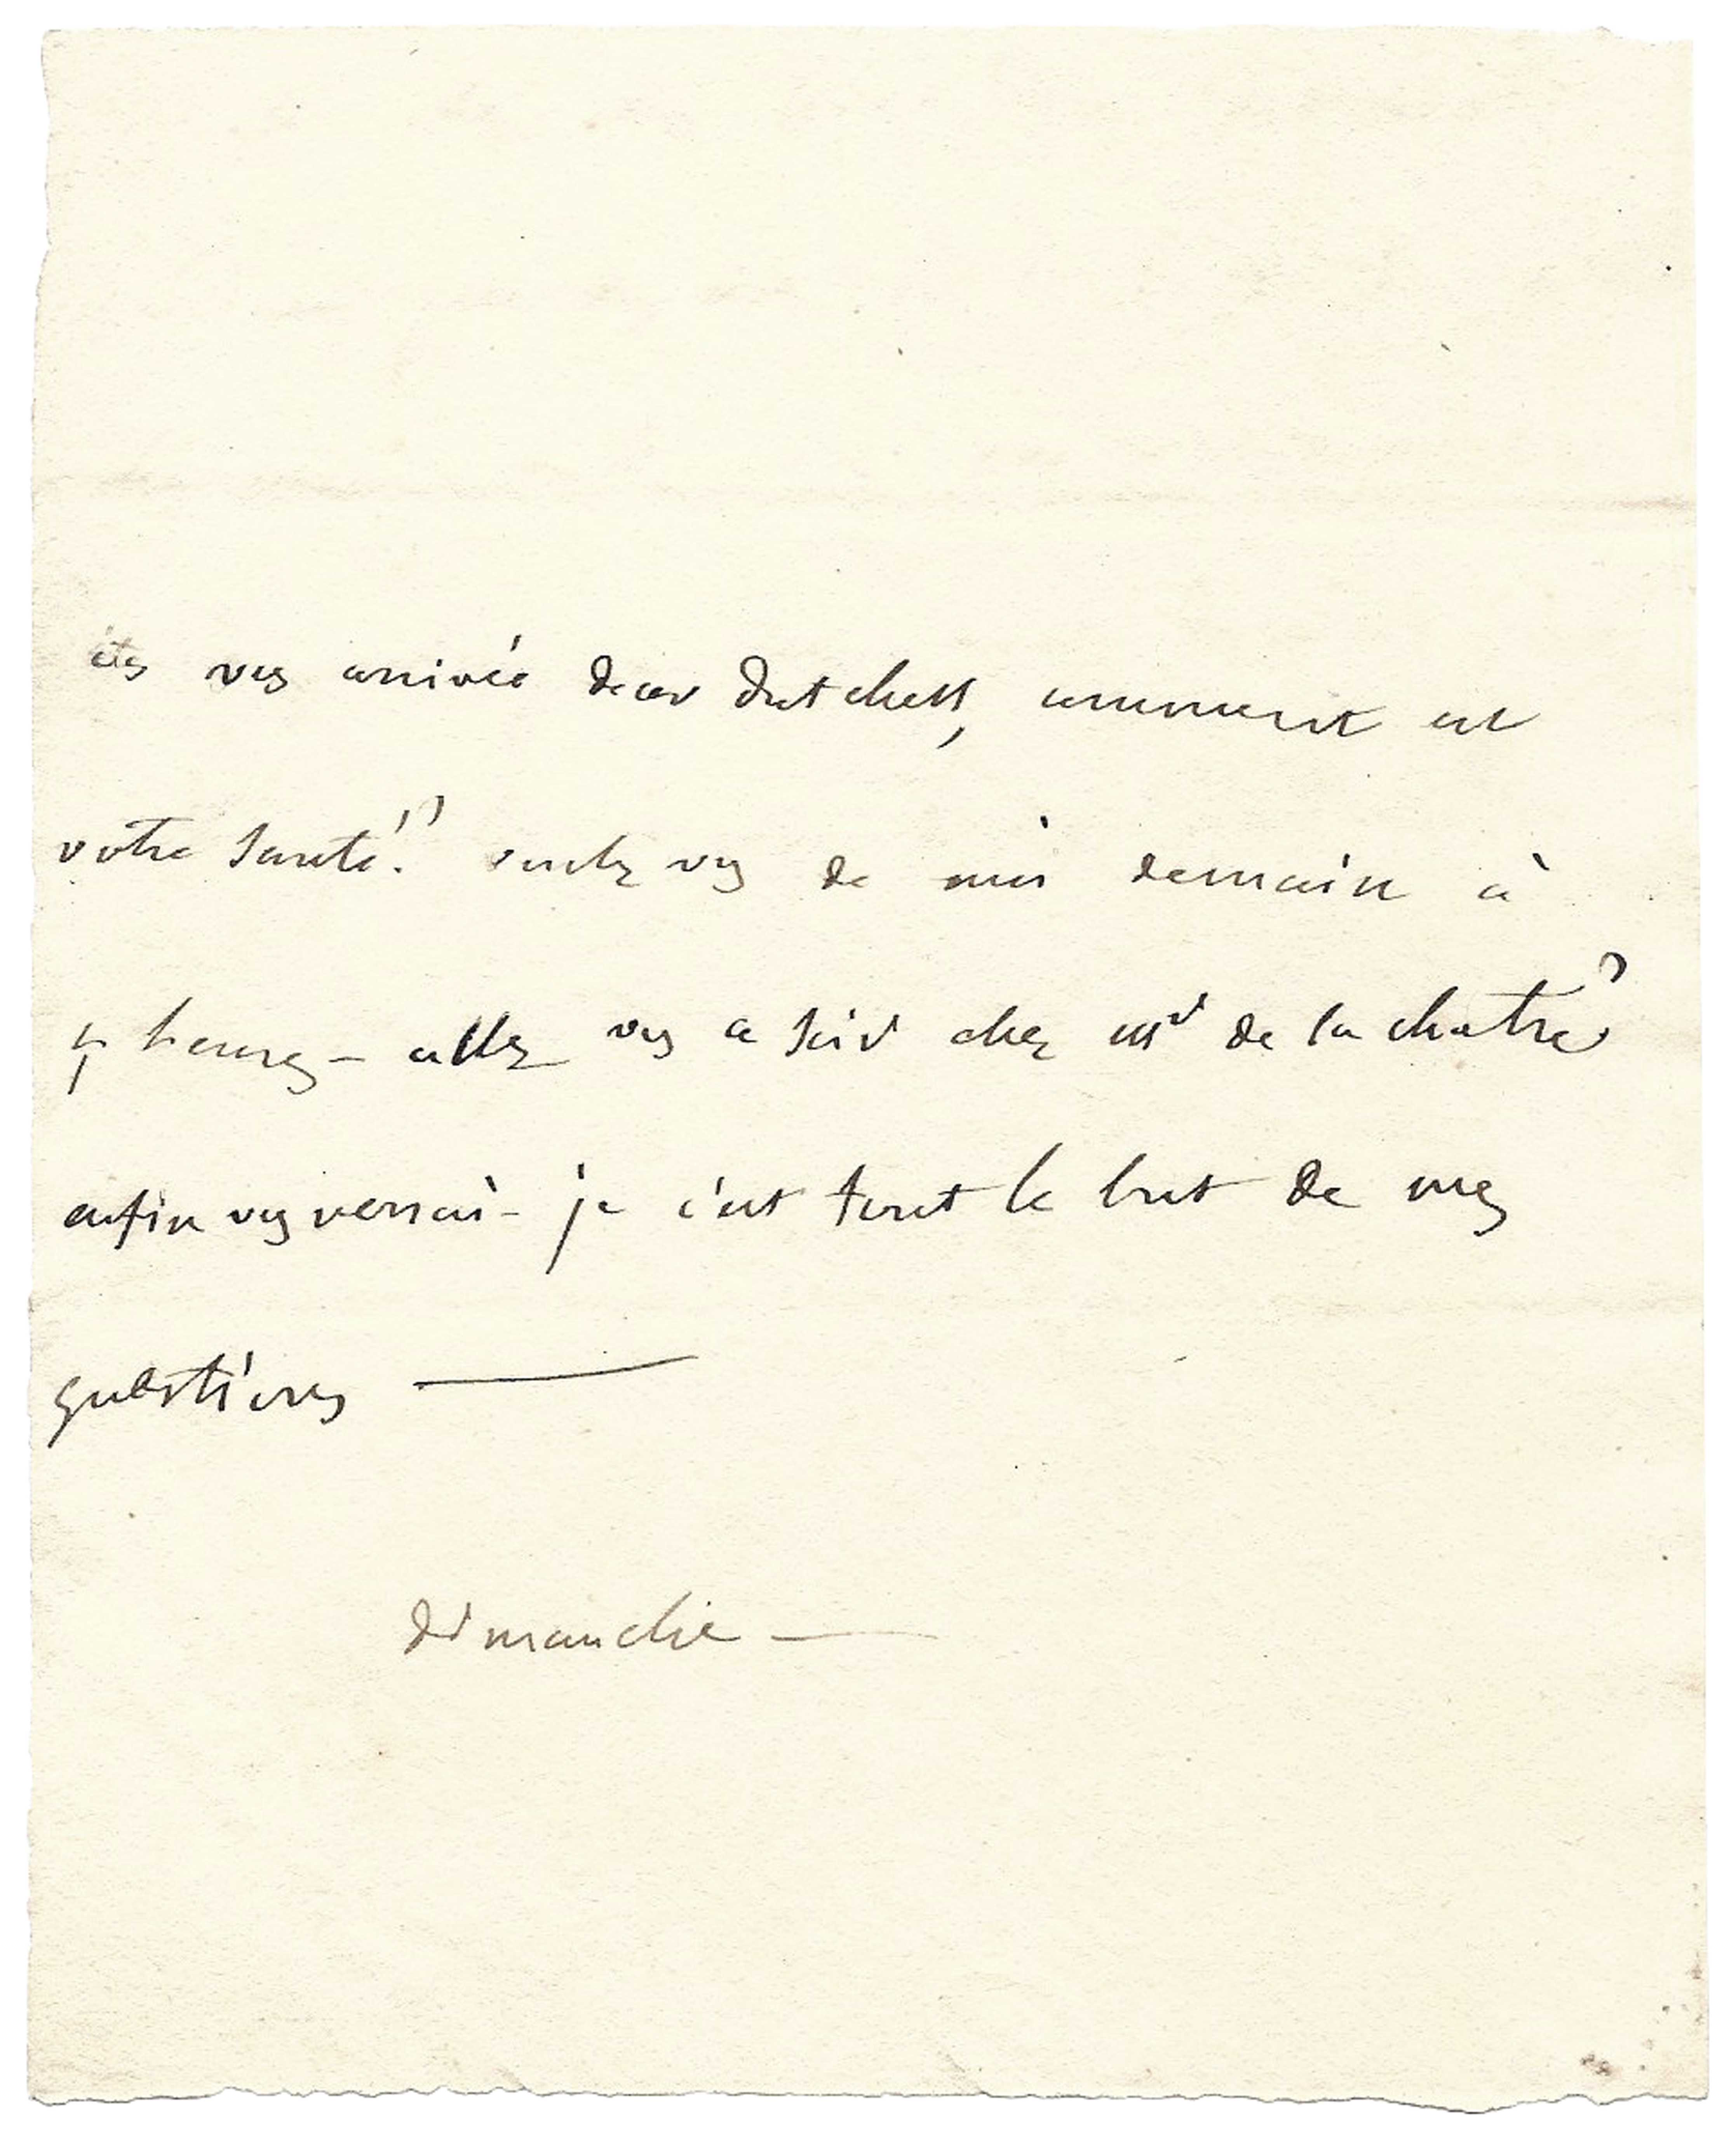 êtes vous arrivée dear dutchess, comment est
votre santé? voulez vous de moi demain à
5 heures – allez vous ce soir chez mr de la chatre?
enfin vous verrai-je c'est tout le but de mes
questions —
dimanche —